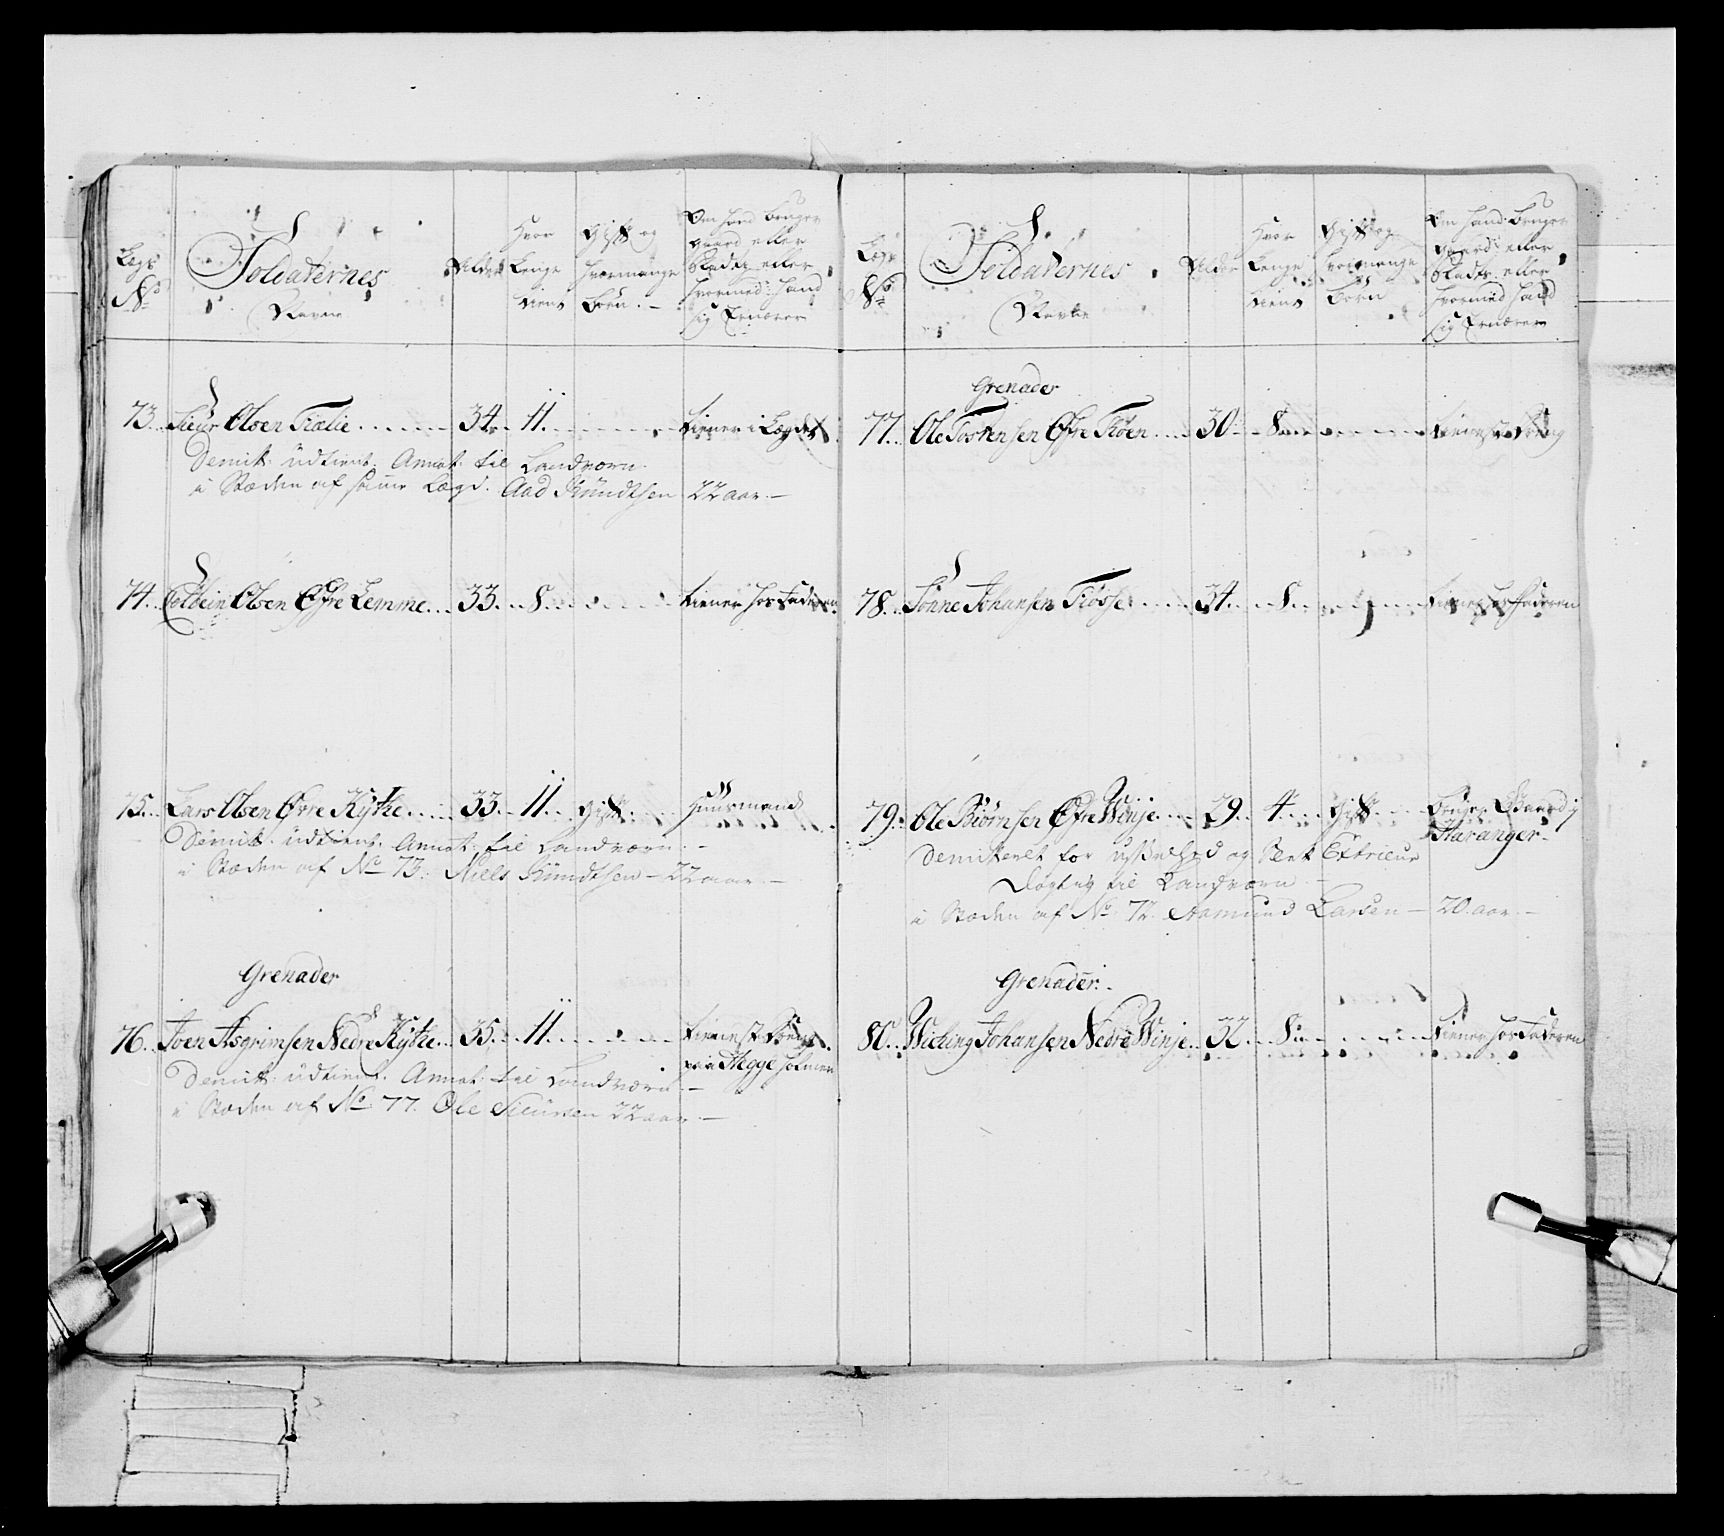 Lægs
No
Soldaternes
Navne
Alder
Hvor
Længe
tient
Gift og
hvormange
børn
Om hand bruger
gaard eller
pladtz eller
hvormed hand
sig Ernærer
73. Siur Olsen Trælie 34. 11. tiener i Lægdet
Demit: udtient. Annot: til Landværn.
i Stæden af samme Lægd. Aad Knudtsen 22 aar.
74. Colbein Olsen Øfre Lemme 33. 8. tiener hos Faderen
75. Lars Olsen Øvre Kytke 33. 11. Gift Huusmand
Demit: udtient Annot: til Landværn.
i Stæden af No 73. Niels Knudtsen 22 aar.
Grenader
76. Joen Asgrimsen Nedre Kytke 35. 11. tienest Dreng
paa Hegge holmen
Demit: udtient. Annot: til Landværn
i Stæden af No 77. Ole Siursen 22 aar.
Lægs
No
Soldaternes
Navne
Alder
Hvor
Længe
tient
Gift og
hvormange
børn
Om hand bruger
gaard eller
pladtz eller
hvormed hand
sig Ernærer
Grenader
77. Ole Tostensen Øfre Trøen 30. 8. tienest Dreng
78. Sønne Johansen Tiøsse 34. 8. tiener hos Faderen
79. Ole Biørnsen Øfre Winje 29. 4. Gift bruger Gaard i
Haranger
Demitteret for og slet Extrieur
dogtig til Landværn
i Stæden af No 72. Aamund Larsen 20 aar.
Grenader
80. Wiching Johansen Nedre Winje 32. 8. Tiener hos Faderen